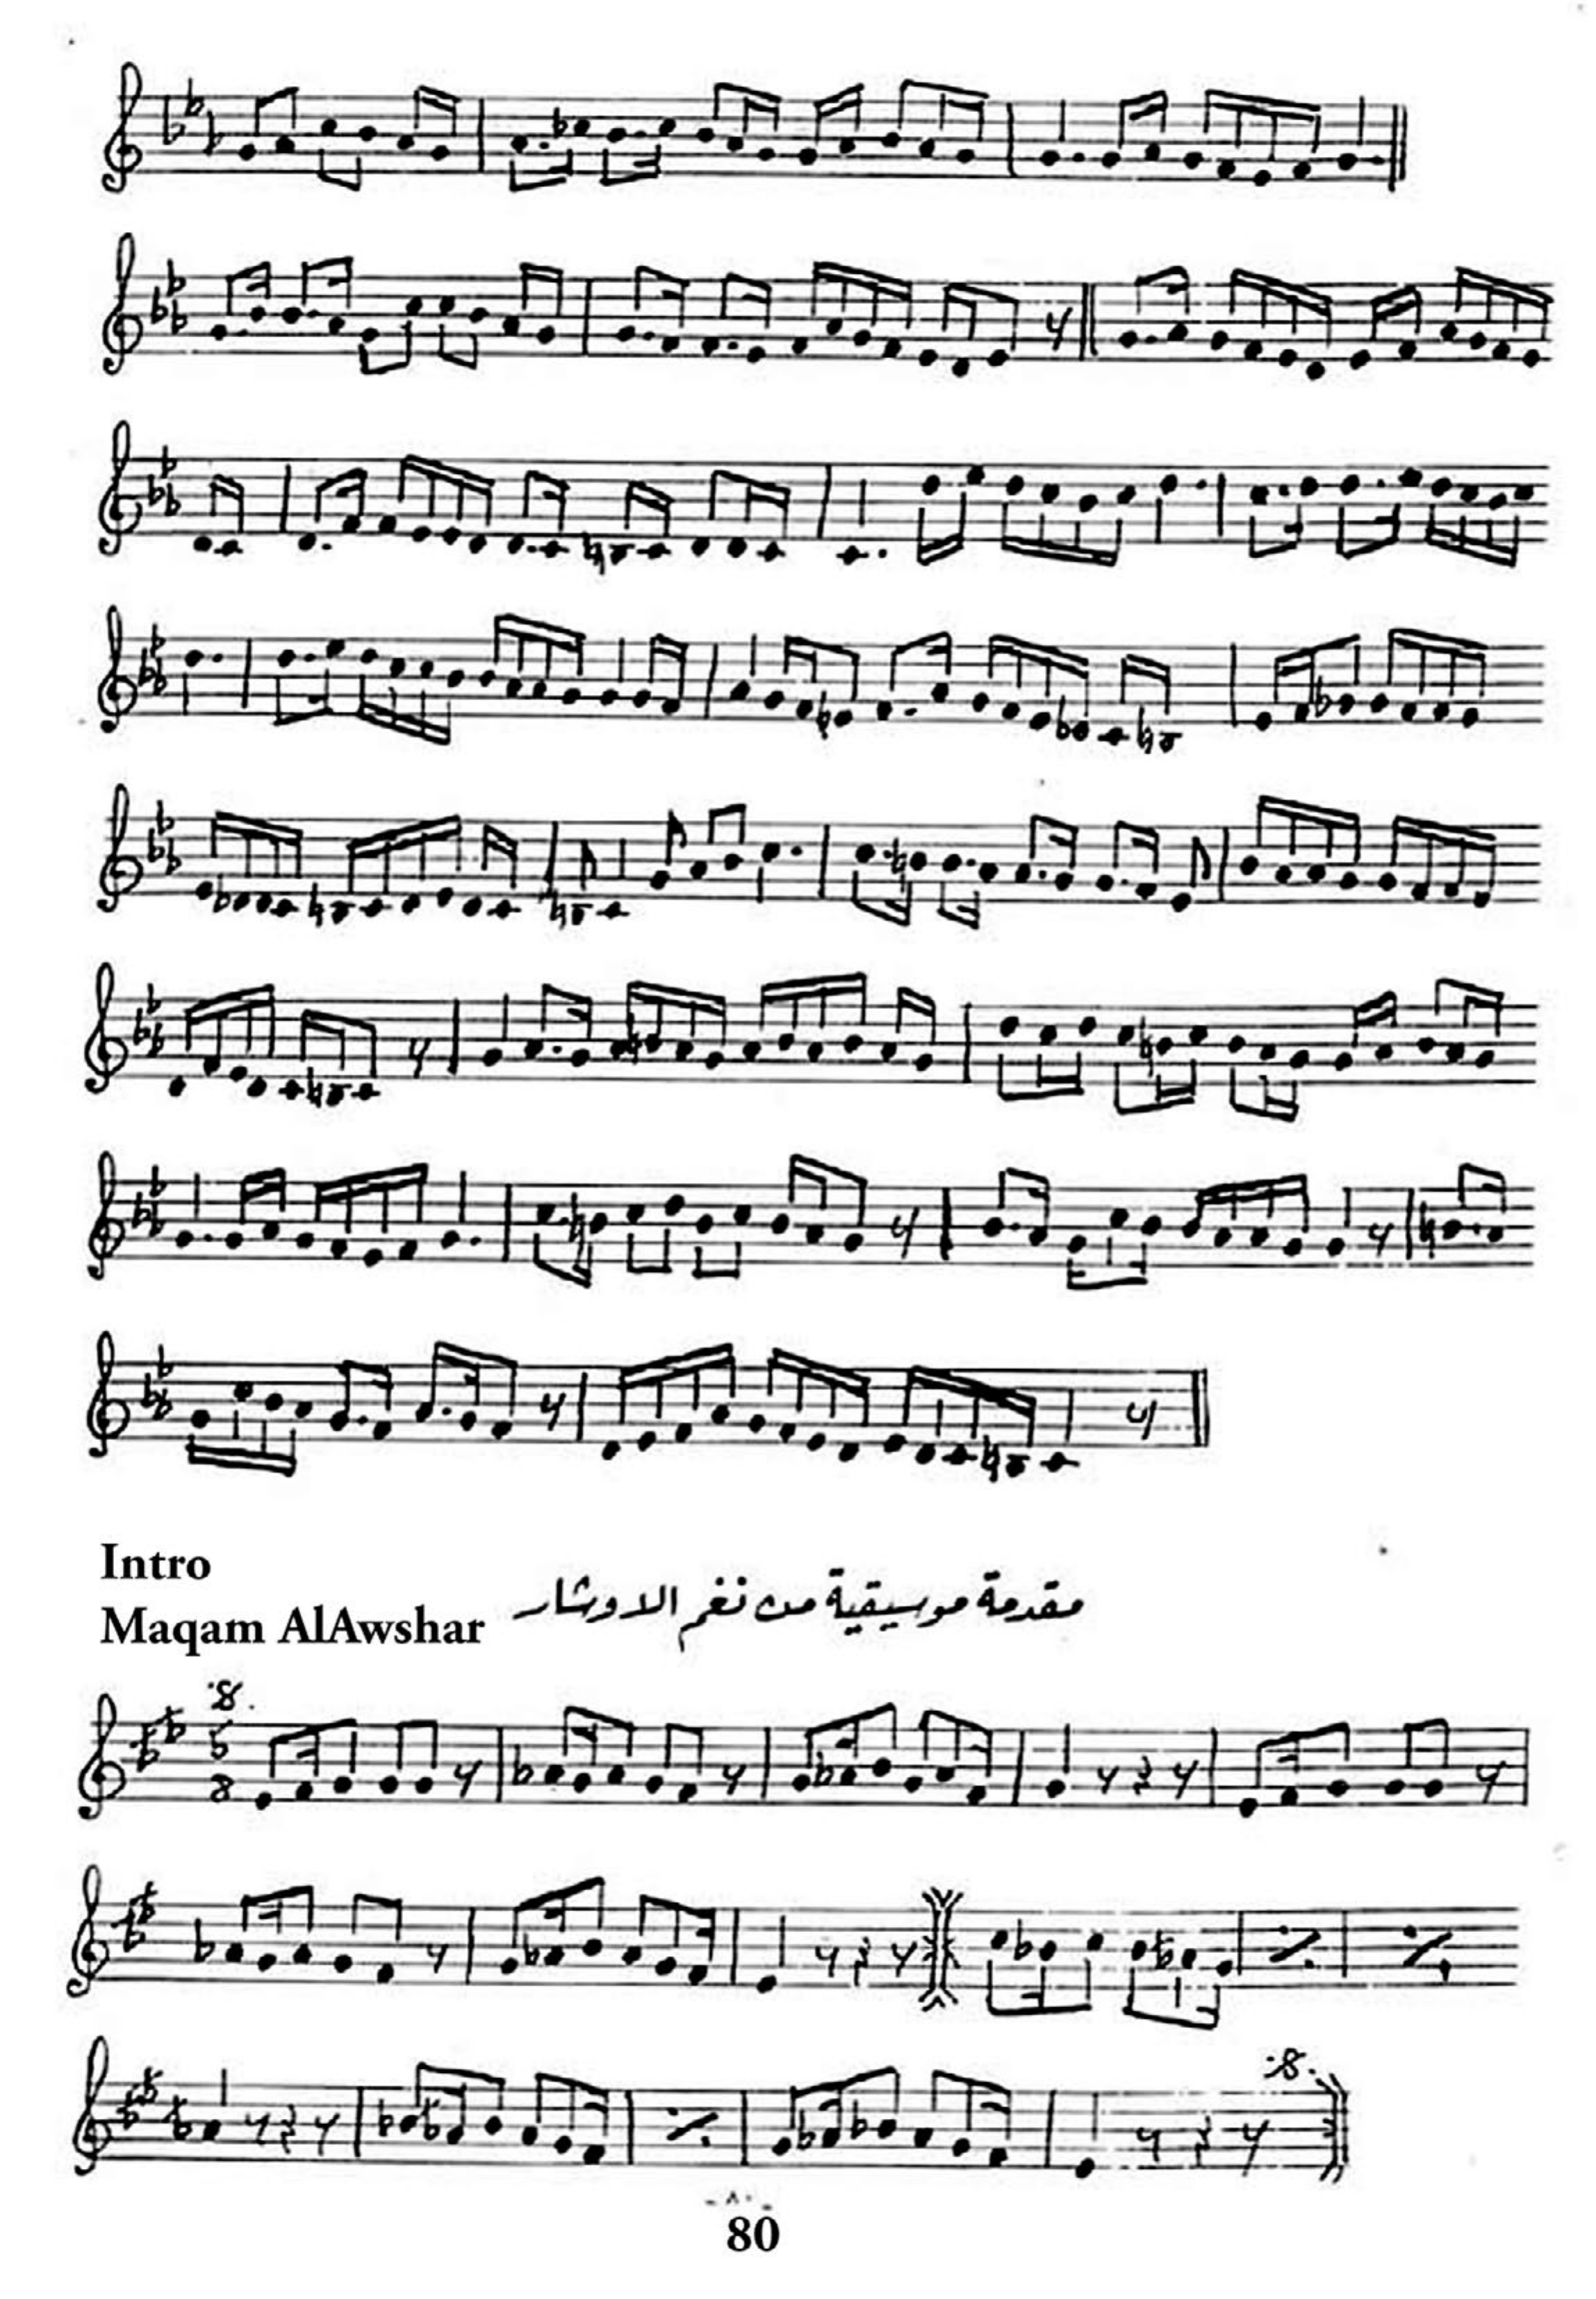 Intro
Maqam AlAwshar
مقدمة موسيقية من نغم الاوشار
5
8
- ٨٠ -
80